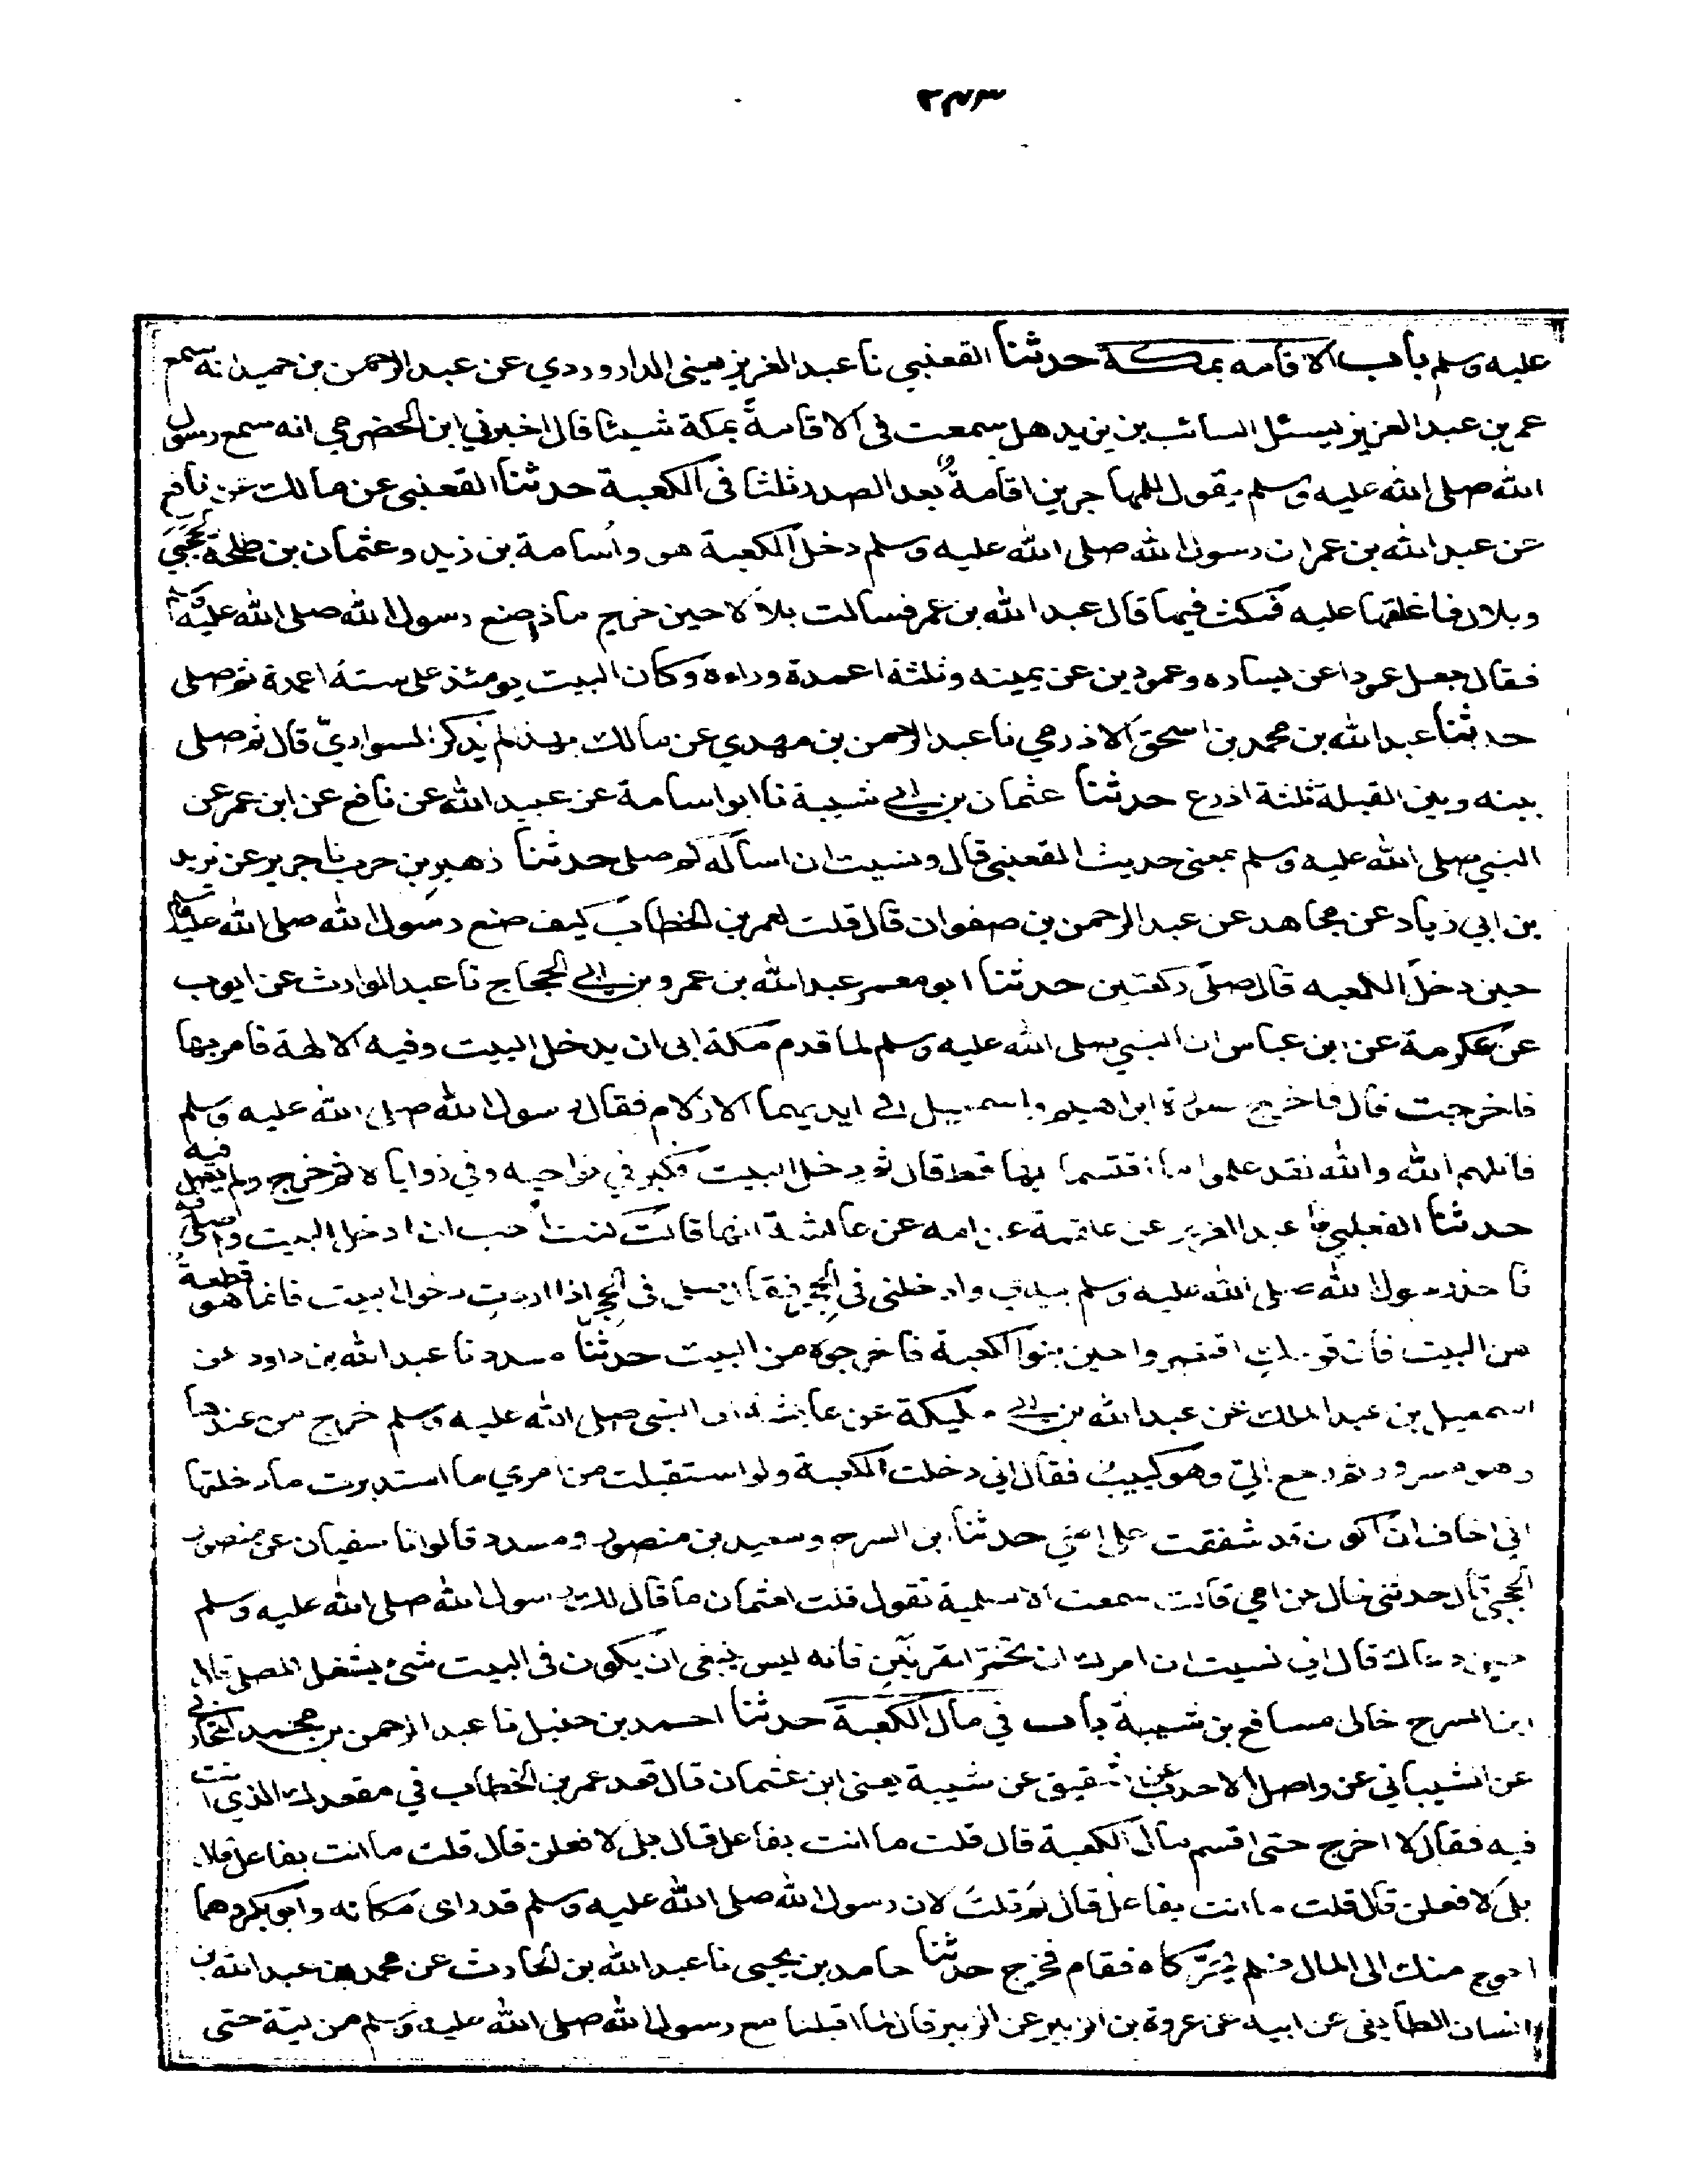 ٢٧٣
عليه وسلم باب الاقامه بمكة حدثنا القعنبي نا عبد العزيز يعنى الدراوردي عن عبد الرحمن بن حميد انه سمع
عمر بن عبد العزيز يسئل السائب بن يزيد هل سمعت فى الاقامة بمكة شيئا قال اخبرني ابن الحضرمي انه سمع رسول
الله صلى الله عليه وسلم يقول للمهاجرين اقامة بعد الصدر ثلثا فى الكعبة حدثنا القعنبى عن مالك عن نافع
عن عبد الله بن عمر ان رسول الله صلى الله عليه وسلم دخل الكعبة هو واُسامة بن زيد وعثمان بن طلحة الحجبي
وبلال فاغلقها عليه فمكث فيها قال عبد الله بن عمر فسالت بلالا حين خرج ماذا صنع رسول الله صلى الله عليه وسلم
فقال جعل عمودا عن يساره وعمودين عن يمينه وثلثة اعمدة وراءه وكان البيت يومئذ على ستة اعمدة ثم صلى
حدثنا عبد الله بن محمد بن اسحق الاذرمي نا عبد الرحمن بن مهدي عن مالك بهذا لم يذكر السواري قال ثم صلى
بينه وبين القبلة ثلثة اذرع حدثنا عثمان بن ابي شيبة نا ابو اسامة عن عبيد الله عن نافع عن ابن عمر عن
النبي صلى الله عليه وسلم بمعنى حديث القعنبي قال ونسيت ان اساله كم صلى حدثنا زهير بن حرب نا جرير عن يزيد
بن ابي زياد عن مجاهد عن عبد الرحمن بن صفوان قال قلت لعمر بن الخطاب كيف صنع رسول الله صلى الله عليه وسلم
حين دخل الكعبه قال صلى ركعتين حدثنا ابو معمر عبد الله بن عمرو بن ابي الحجاج نا عبد الوارث عن ايوب
عن عكرمة عن ابن عباس ان النبي صلى الله عليه وسلم لما قدم مكة ابى ان يدخل البيت وفيه الالهة فامر بها
فاخرجت قال فاخرج صورة ابراهيم واسمعيل وفي ايديهما الازلام فقال رسول الله صلى الله عليه وسلم
قاتلهم الله والله لقد علموا ما اقتسما بها قط قال ثم دخل البيت فكبر في نواحيه وفي زواياه ثم خرج ولم يصل فيه
حدثنا القعنبي نا عبد العزيز عن علقمة عن امه عن عائشة انها قالت كنت احب ان ادخل البيت واصلي فيه
فاخذ رسول الله صلى الله عليه وسلم بيدي وادخلنى فى الحجر فقال صلى فى الحجر اذا اردت دخول البيت فانما هو قطعة
من البيت فان قومك اقتصروا حين بنوا الكعبة فاخرجوه من البيت حدثنا مسدد نا عبد الله بن داود عن
اسمعيل بن عبد الملك عن عبد الله بن ابي مليكة عن عائشة ان النبى صلى الله عليه وسلم خرج من عندها
وهو مسرور ثم رجع الي وهو كييب فقال اني دخلت الكعبة ولو استقبلت من امري ما استدبرت ما دخلتها
اني اخاف ان اكون قد شفقت على امتي حدثنا ابن السرح وسعيد بن منصور ومسدد قالوا نا سفيان عن منصور
الحجبي قال حدثنى خالى عن امي قالت سمعت الاسلمية تقول قلت لعثمان ما قال لك رسول الله صلى الله عليه وسلم
حين دعاك قال اني نسيت ان امرك ان تخمر القرنين فانه ليس ينبغى ان يكون فى البيت شئ يشغل المصلى قال
ابن السرح خالى مسافع بن شيبة باب في مال الكعبة حدثنا احمد بن حنبل نا عبد الرحمن بن محمد المحاربي
عن الشيباني عن واصل الاحدب عن شقيق عن شيبة يعنى ابن عثمان قال قعد عمر بن الخطاب في مقعدك الذي انت
فيه فقال لا اخرج حتى اقسم مال الكعبة قال قلت ما انت بفاعل قال بلى لافعلن قال قلت ما انت بفاعل قال
بلى لافعلن قال قلت ما انت بفاعل قال لم قلت لان رسول الله صلى الله عليه وسلم قد راى مكانه وابو بكر وهما
احوج منك الى المال فلم يحركاه فقام فخرج حدثنا حامد بن يحيى نا عبد الله بن الحارث عن محمد بن عبد الله بن
انسان الطائفي عن ابيه عن عروة بن الزبير عن الزبير قال لما اقبلنا مع رسول الله صلى الله عليه وسلم من لية حتى